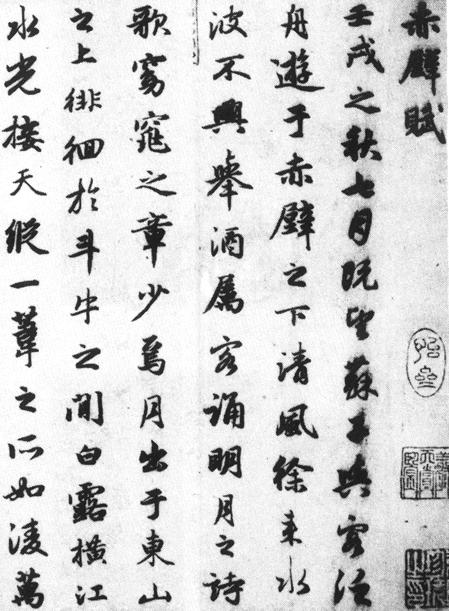 赤壁賦
壬戌之秋七月既望蘇子與客泛
舟遊于赤壁之下清風徐来水
波不興舉酒屬客誦明月之詩
歌窈窕之章少焉月出于東山
之上徘徊於斗牛之間白露橫江
水光接天縱一葦之所如凌萬